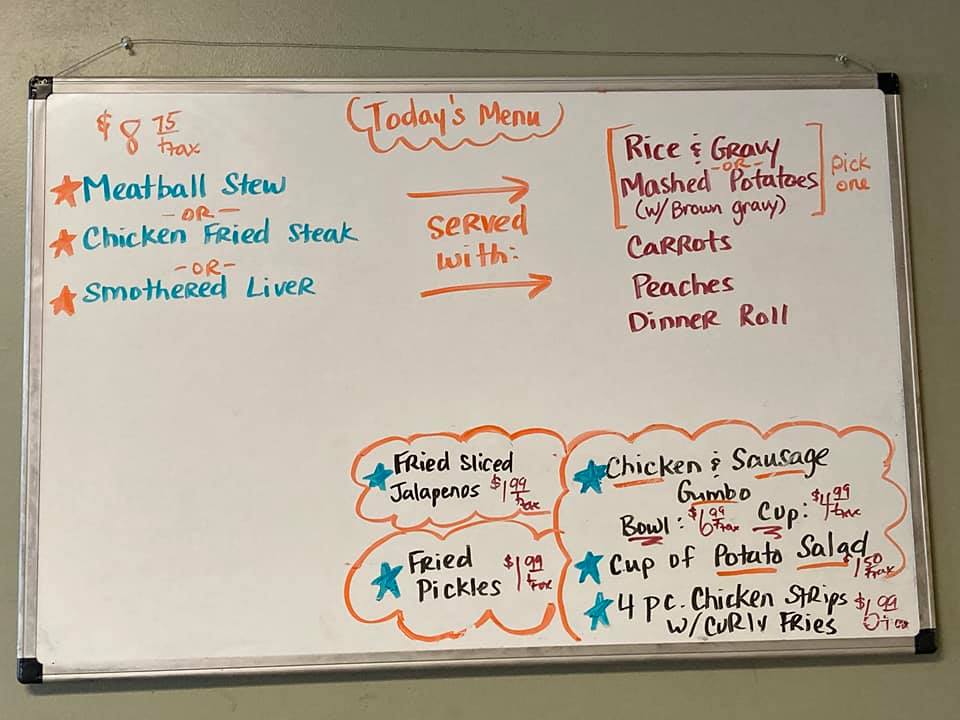 Today's Menu
$8 75 +tax
Meatball Stew
-OR-
Chicken Fried Steak
-OR-
Smothered Liver
served
with:
Rice & Gravy
-OR-
Mashed Potatoes
(w/ Brown gravy)
pick
one
Carrots
Peaches
Dinner Roll
Fried Sliced
Jalapenos $1 99 +tax
Fried
Pickles $1 99 +tax
Chicken & Sausage
Gumbo
Bowl: $6 99 +tax Cup: $4 99 +tax
Cup of Potato Salad
$1 50 +tax
4 pc. Chicken Strips
w/ Curly Fries $6 99 +tax